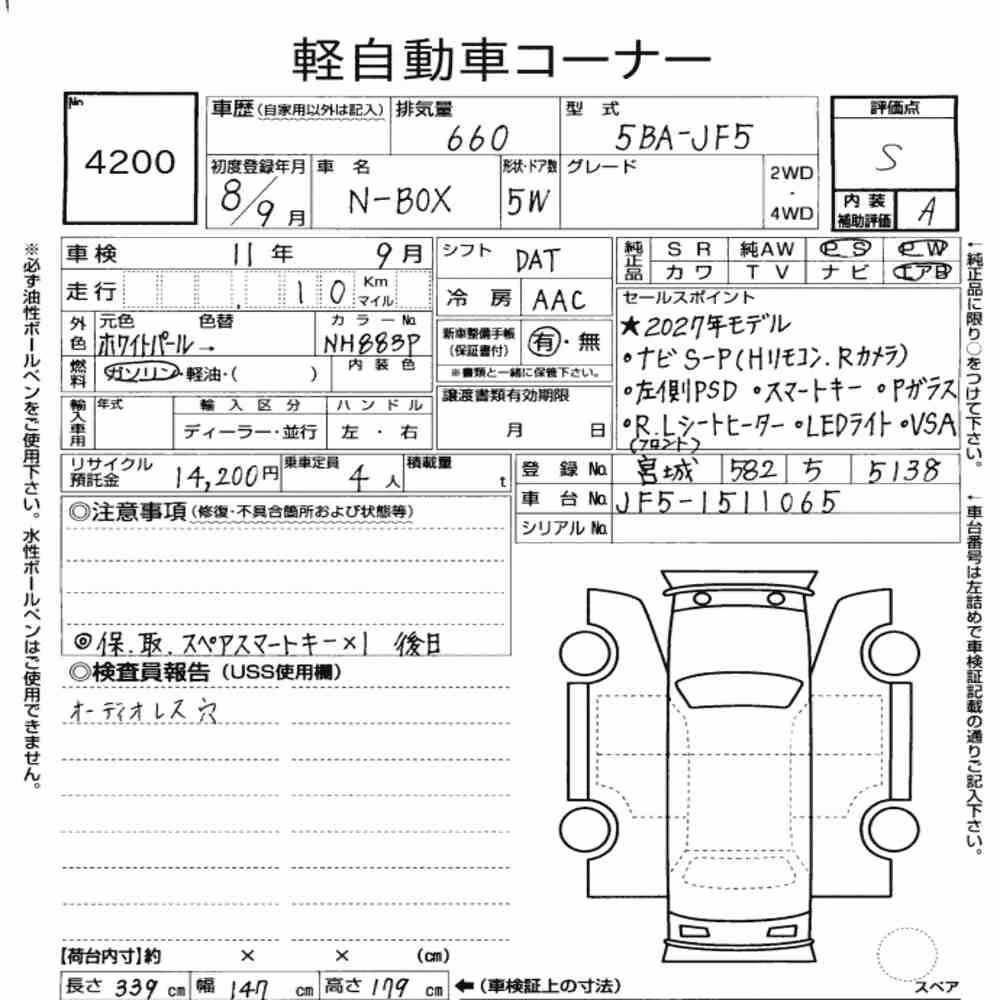 軽自動車コーナー
No 4200
車歴(自家用以外は記入) 排気量 660 型式 5BA-JF5
初度登録年月 8/9月 車名 N-BOX 形状・ドア数 5W グレード 2WD・4WD
評価点 S
内装補助評価 A
車検 11年 9月 シフト DAT
走行 10 Km マイル 冷房 AAC
純正品 SR 純AW PS PW
カワ TV ナビ エアB
外色 元色 色替 カラーNo.
ホワイトパール→ NH883P
燃料 ガソリン・軽油・( ) 内装色
新車整備手帳(保証書付) 有・無
※書類と一緒に保管下さい。
譲渡書類有効期限
月 日
輸入車用 年式 輸入区分 ハンドル
ディーラー・並行 左・右
セールスポイント
★2027年モデル
・ナビS-P(Hリモコン.Rカメラ)
・左側PSD ・スマートキー ・Pガラス
・R.Lシートヒーター ・LEDライト ・VSA
(フロント)
リサイクル預託金 14,200円 乗車定員 4人 積載量 t
登録No. 宮城 582 ち 5138
車台No. JF5-1511065
シリアルNo.
◎注意事項(修復・不具合箇所および状態等)
◎保.取.スペアスマートキー×1 後日
◎検査員報告(USS使用欄)
オーディオレス穴
【荷台内寸】約 × × (cm)
長さ 339 cm 幅 147 cm 高さ 179 cm ←(車検証上の寸法)
スペア
※必ず油性ボールペンをご使用下さい。水性ボールペンはご使用できません。
←純正品に限り○をつけて下さい。
←車台番号は左詰めで車検証記載の通りご記入下さい。